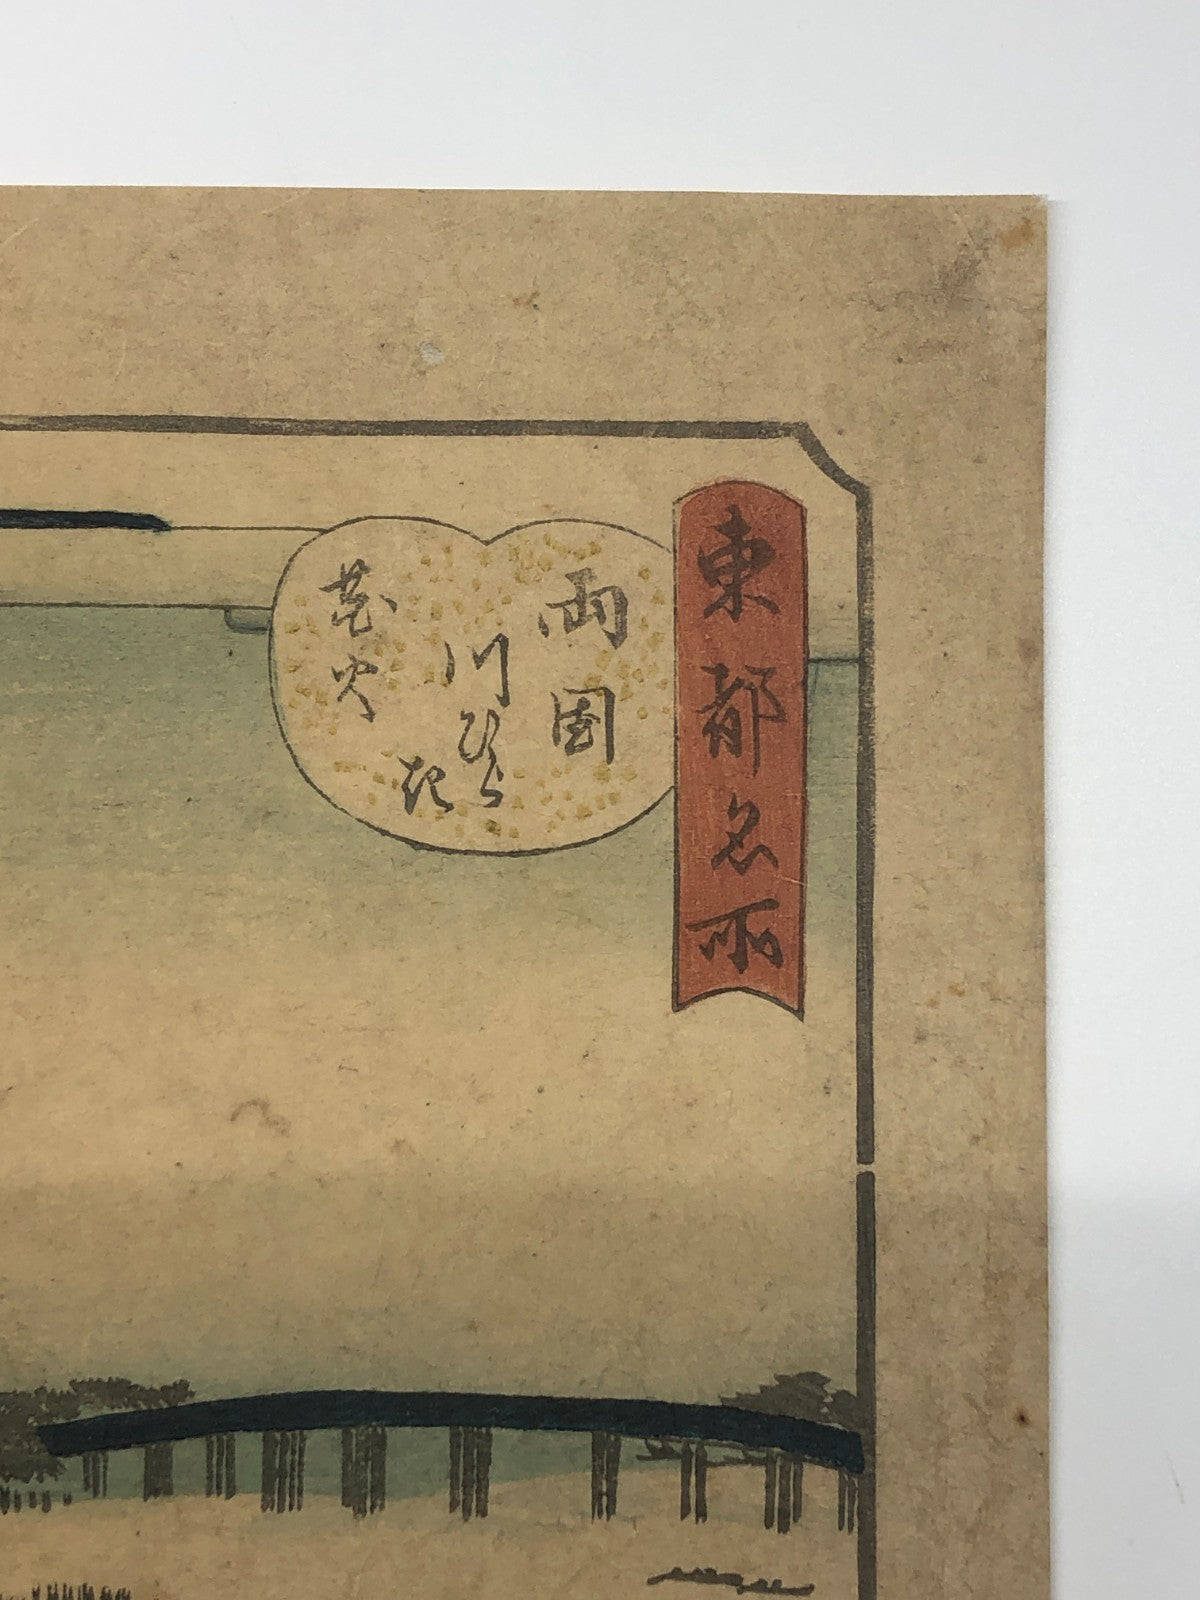 東都名所
両国
川ひらき
花火